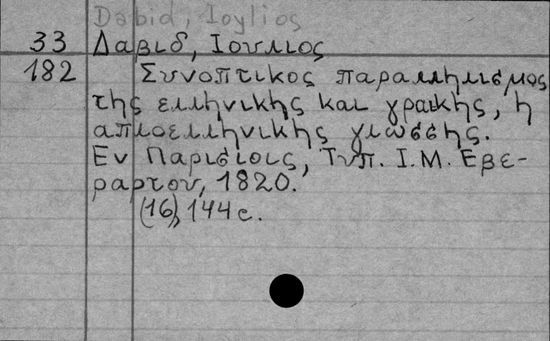 Dabid, Ioylios
33 Δαβιδ, Ιουλιος
182 Συνοπτικος παραλληλισμος
της ελληνικης και γραικης, η
απλοελληνικης γλωσσης.
Εν Παρισιοις, Τυπ. Ι.Μ. Εβε-
ραρτου, 1820.
(16), 144 с.